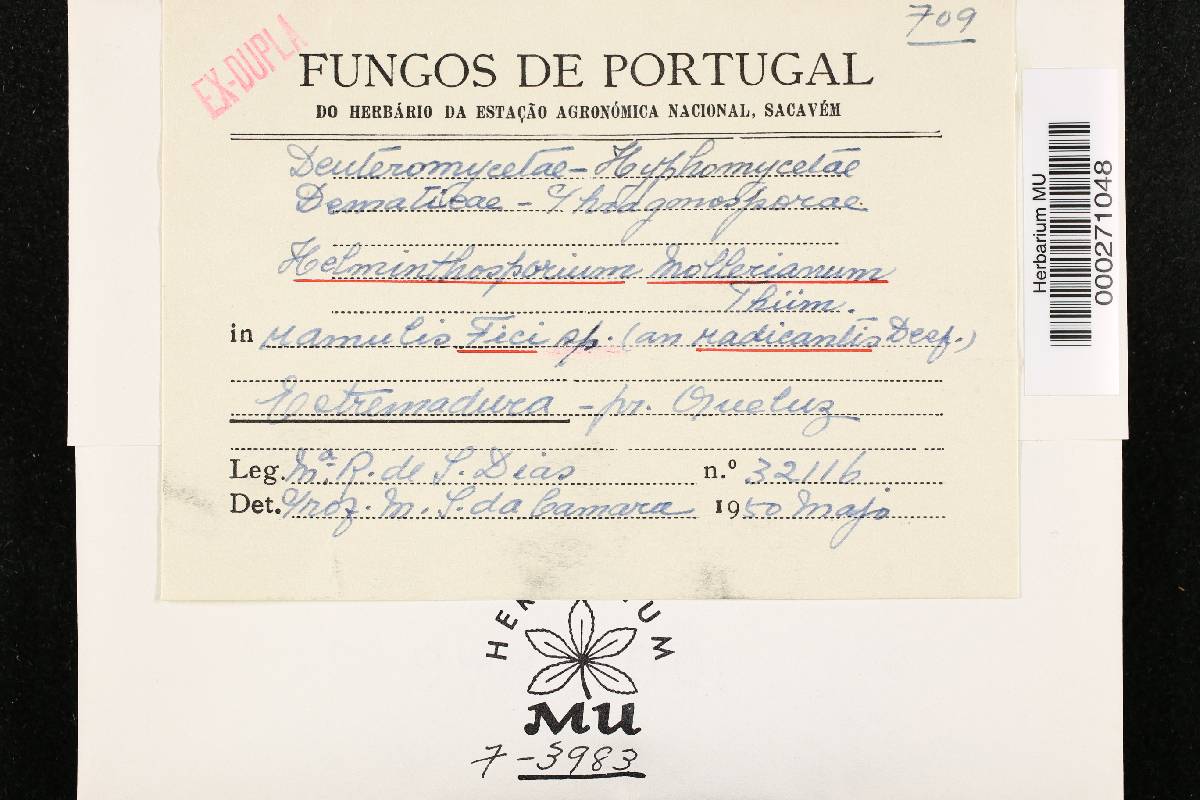 709
EX-DUPLA
FUNGOS DE PORTUGAL
DO HERBÁRIO DA ESTAÇÃO AGRONÓMICA NACIONAL, SACAVÉM
Deuteromycetae - Hyphomycetae
Dematieae - Phragmosporae
Helminthosporium Mollerianum
Thüm.
in ramulis Fici sp. (an radicantis Desf.)
Estremadura - pr. Queluz
Leg. Mª. R. de S. Dias n.º 32116
Det. Prof. M. S. da Camara 1950 Majo
Herbarium MU
000271048
MU
7-3983